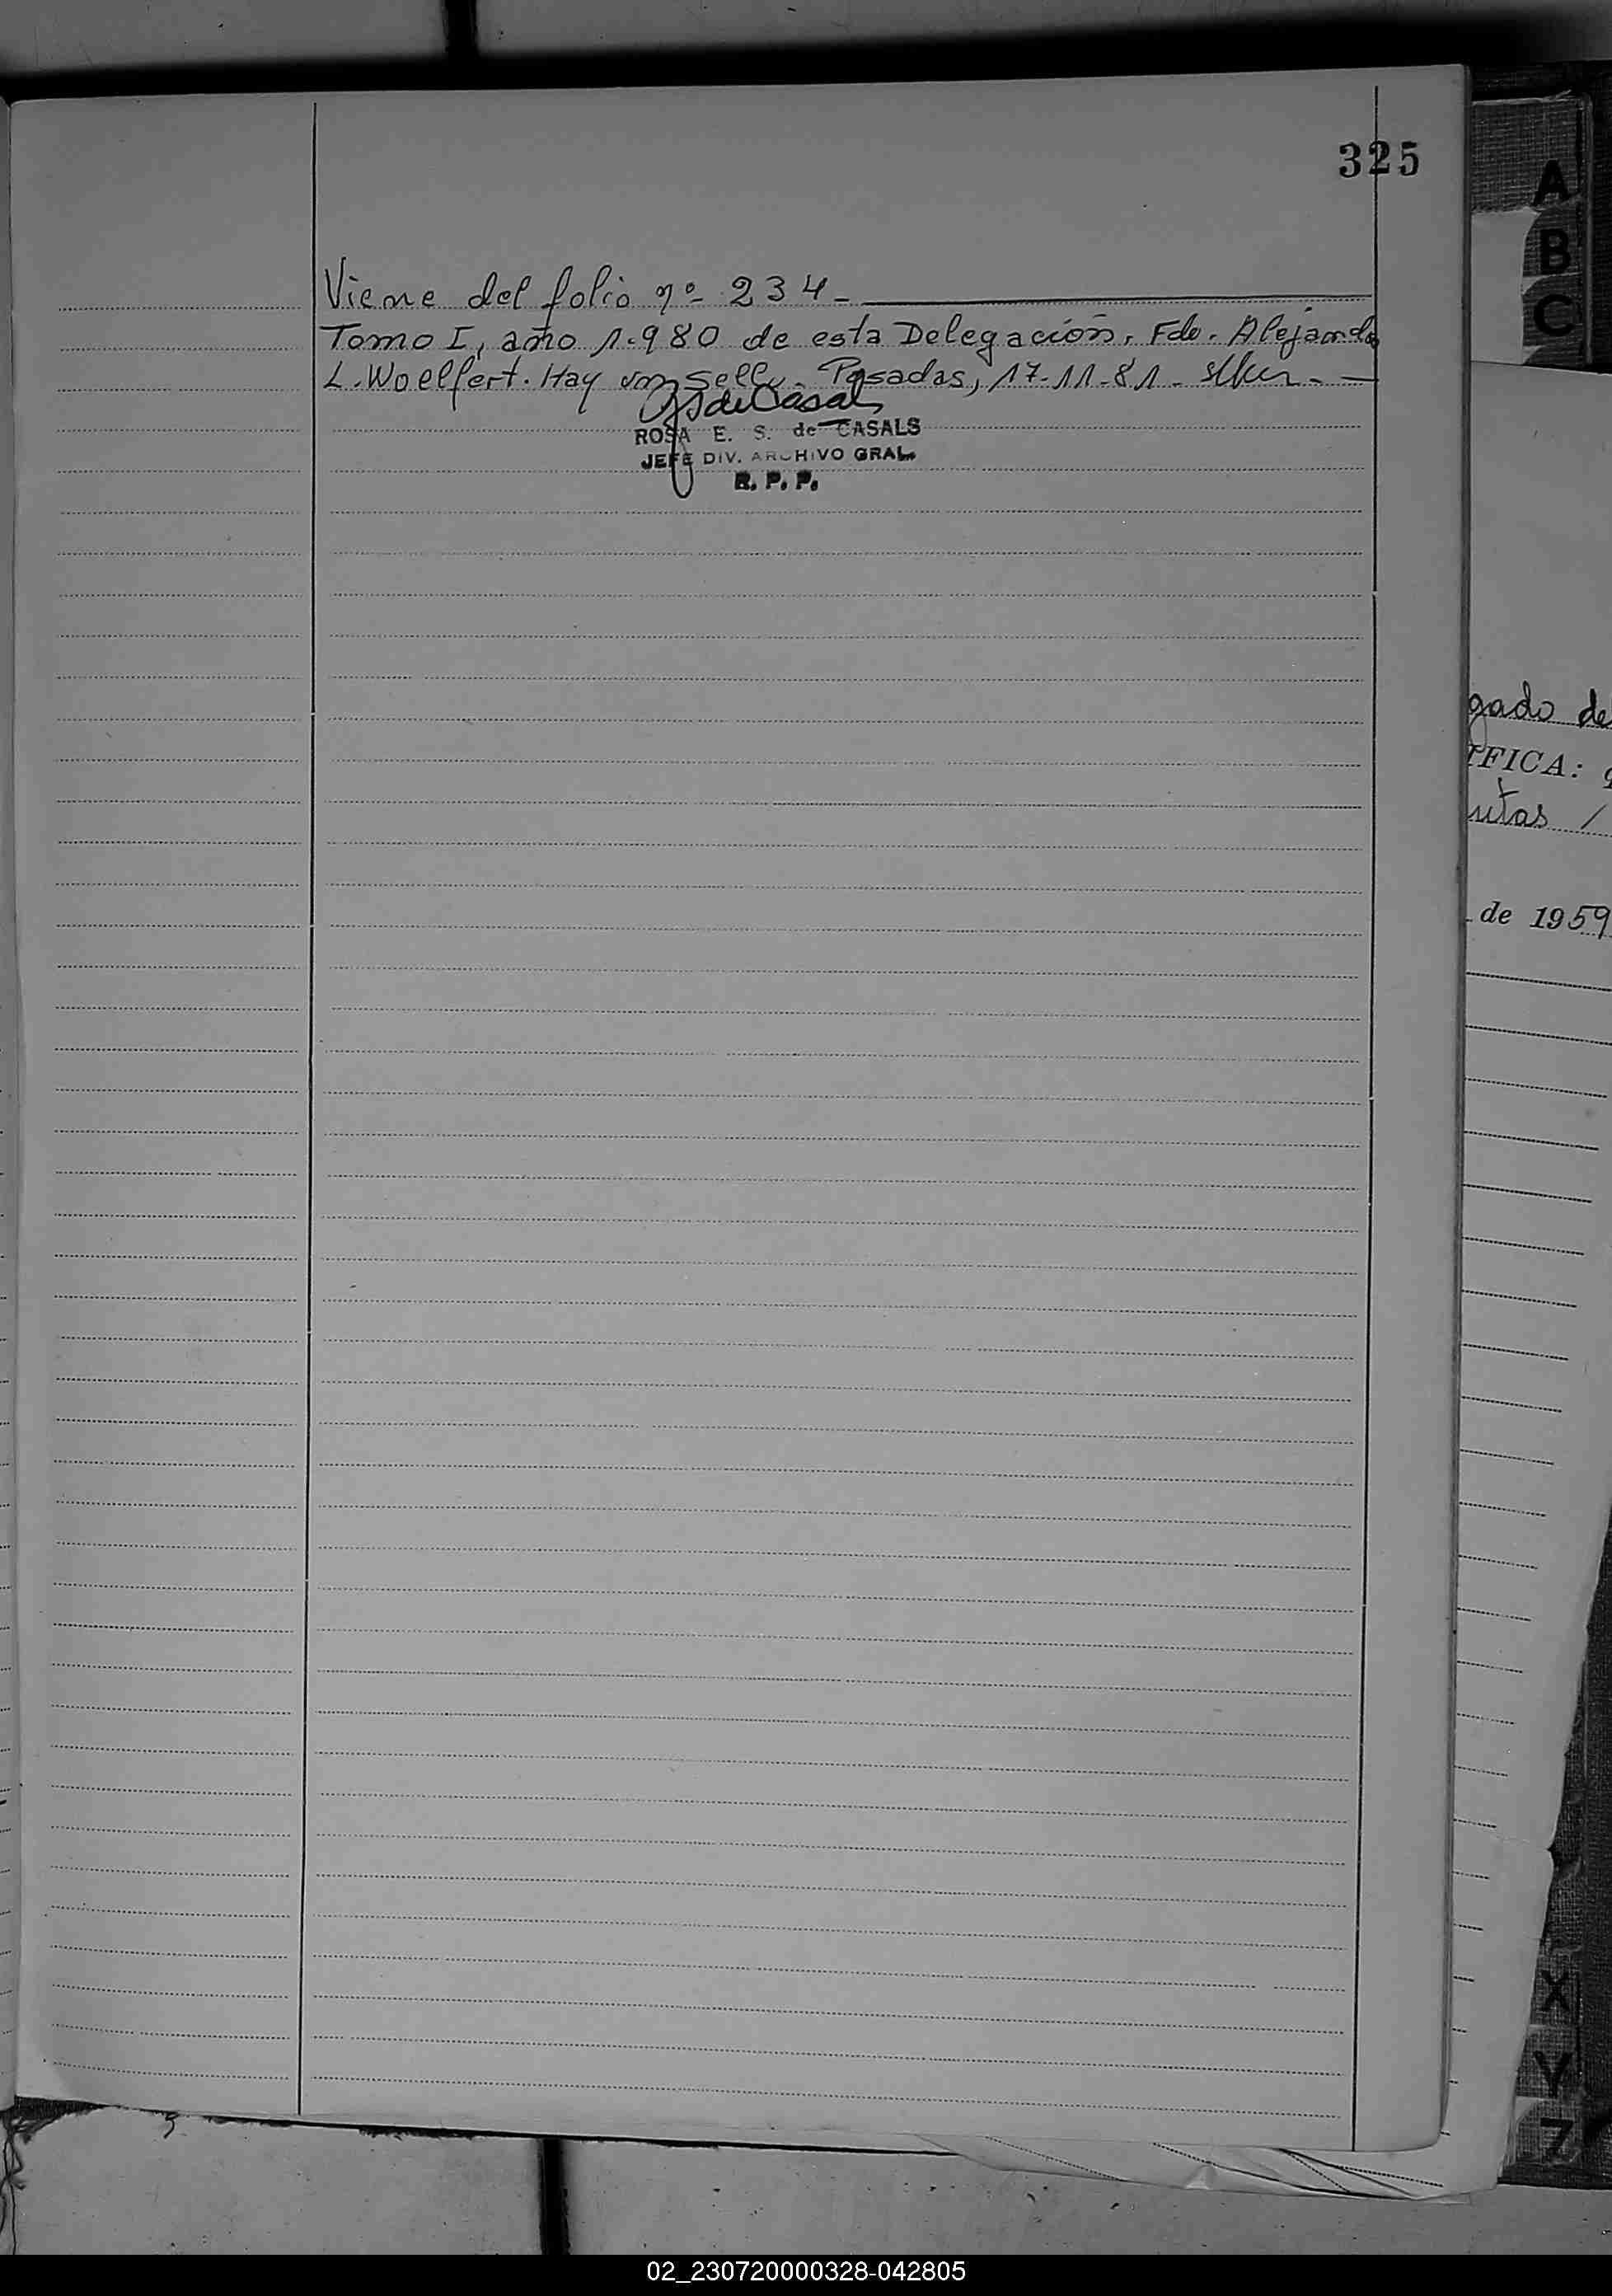 325
Viene del folio nº 234-
Tomo I, año 1.980 de esta Delegación. Fdo. Alejandro
L. Woelfert. Hay un sello. Posadas, 17-11-81-
ROSA E. S. de CASALS
JEFE DIV. ARCHIVO GRAL.
R. P. P.
A
B
C
gado de
IFICA:
utas /
de 1959
X
Y
Z
02_230720000328-042805